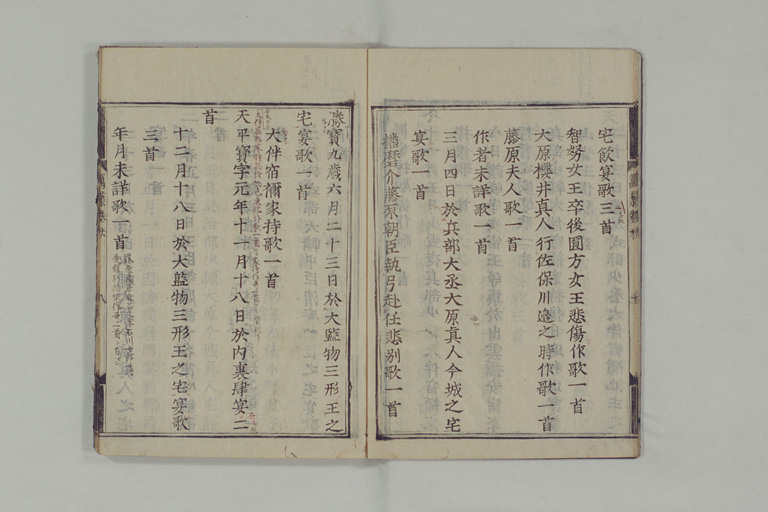 宅飲宴歌三首
智努女王卒後圓方女王悲傷作歌一首
大原櫻井真人行佐保川邊之時作歌一首
藤原夫人歌一首
作者未詳歌一首
三月四日於兵部大丞大原真人今城之宅
宴歌一首
播磨介藤原朝臣執弓赴任悲别歌一首
勝寶九歳六月二十三日於大監物三形王之
宅宴歌一首
大伴宿禰家持歌一首
天平寶字元年十一月十八日於内裏肆宴二
首
十二月十八日於大監物三形王之宅宴歌
三首
年月未詳歌一首